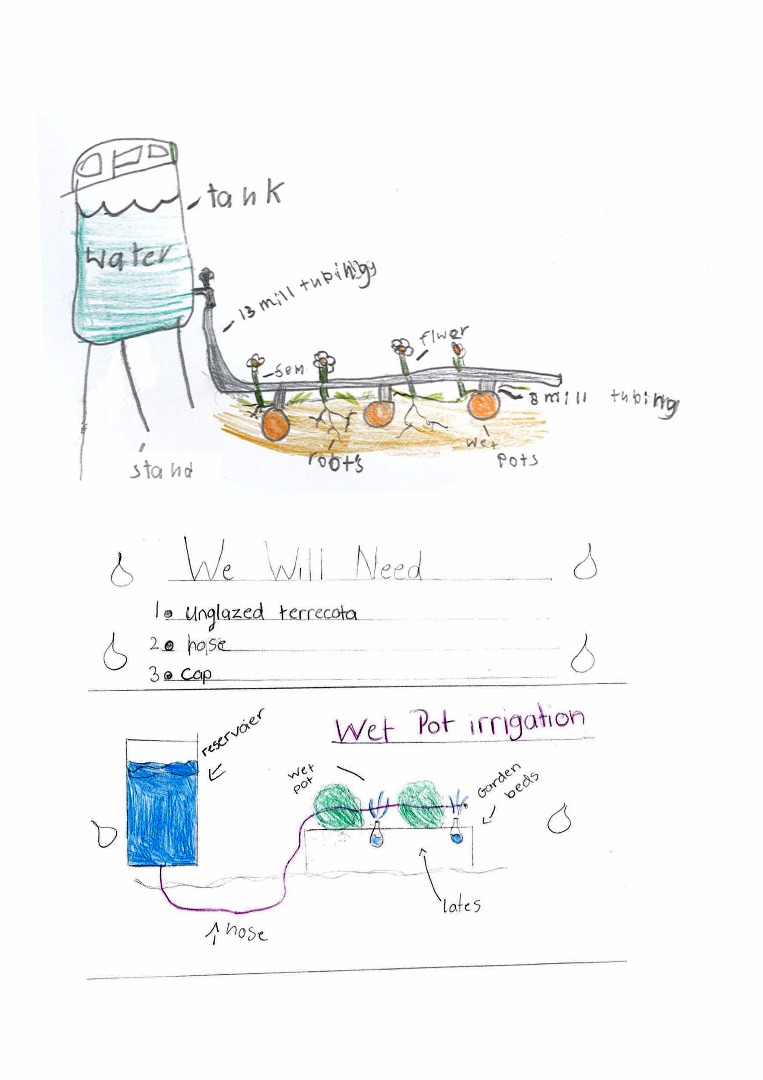 tank
water
13 mill tubingy
flwer
Sem
8 mill tubing
wet
pots
roots
stand
We Will Need
1. unglazed terrecota
2. hose
3. cap
Wet Pot irrigation
reservoier
wet
pot
Garden
beds
lates
hose